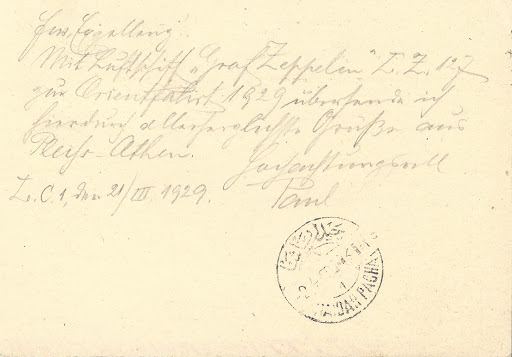 Euer Exzellenz!
Mit Luftschiff „Graf Zeppelin" L. Z. 127
zur Orientfahrt 1929 übersende ich
hierdurch allerherzlichste Grüße aus
Athen. Hochachtungsvoll
L. C. 1, den 21/III 1929. Paul
HAIDAR PACHA